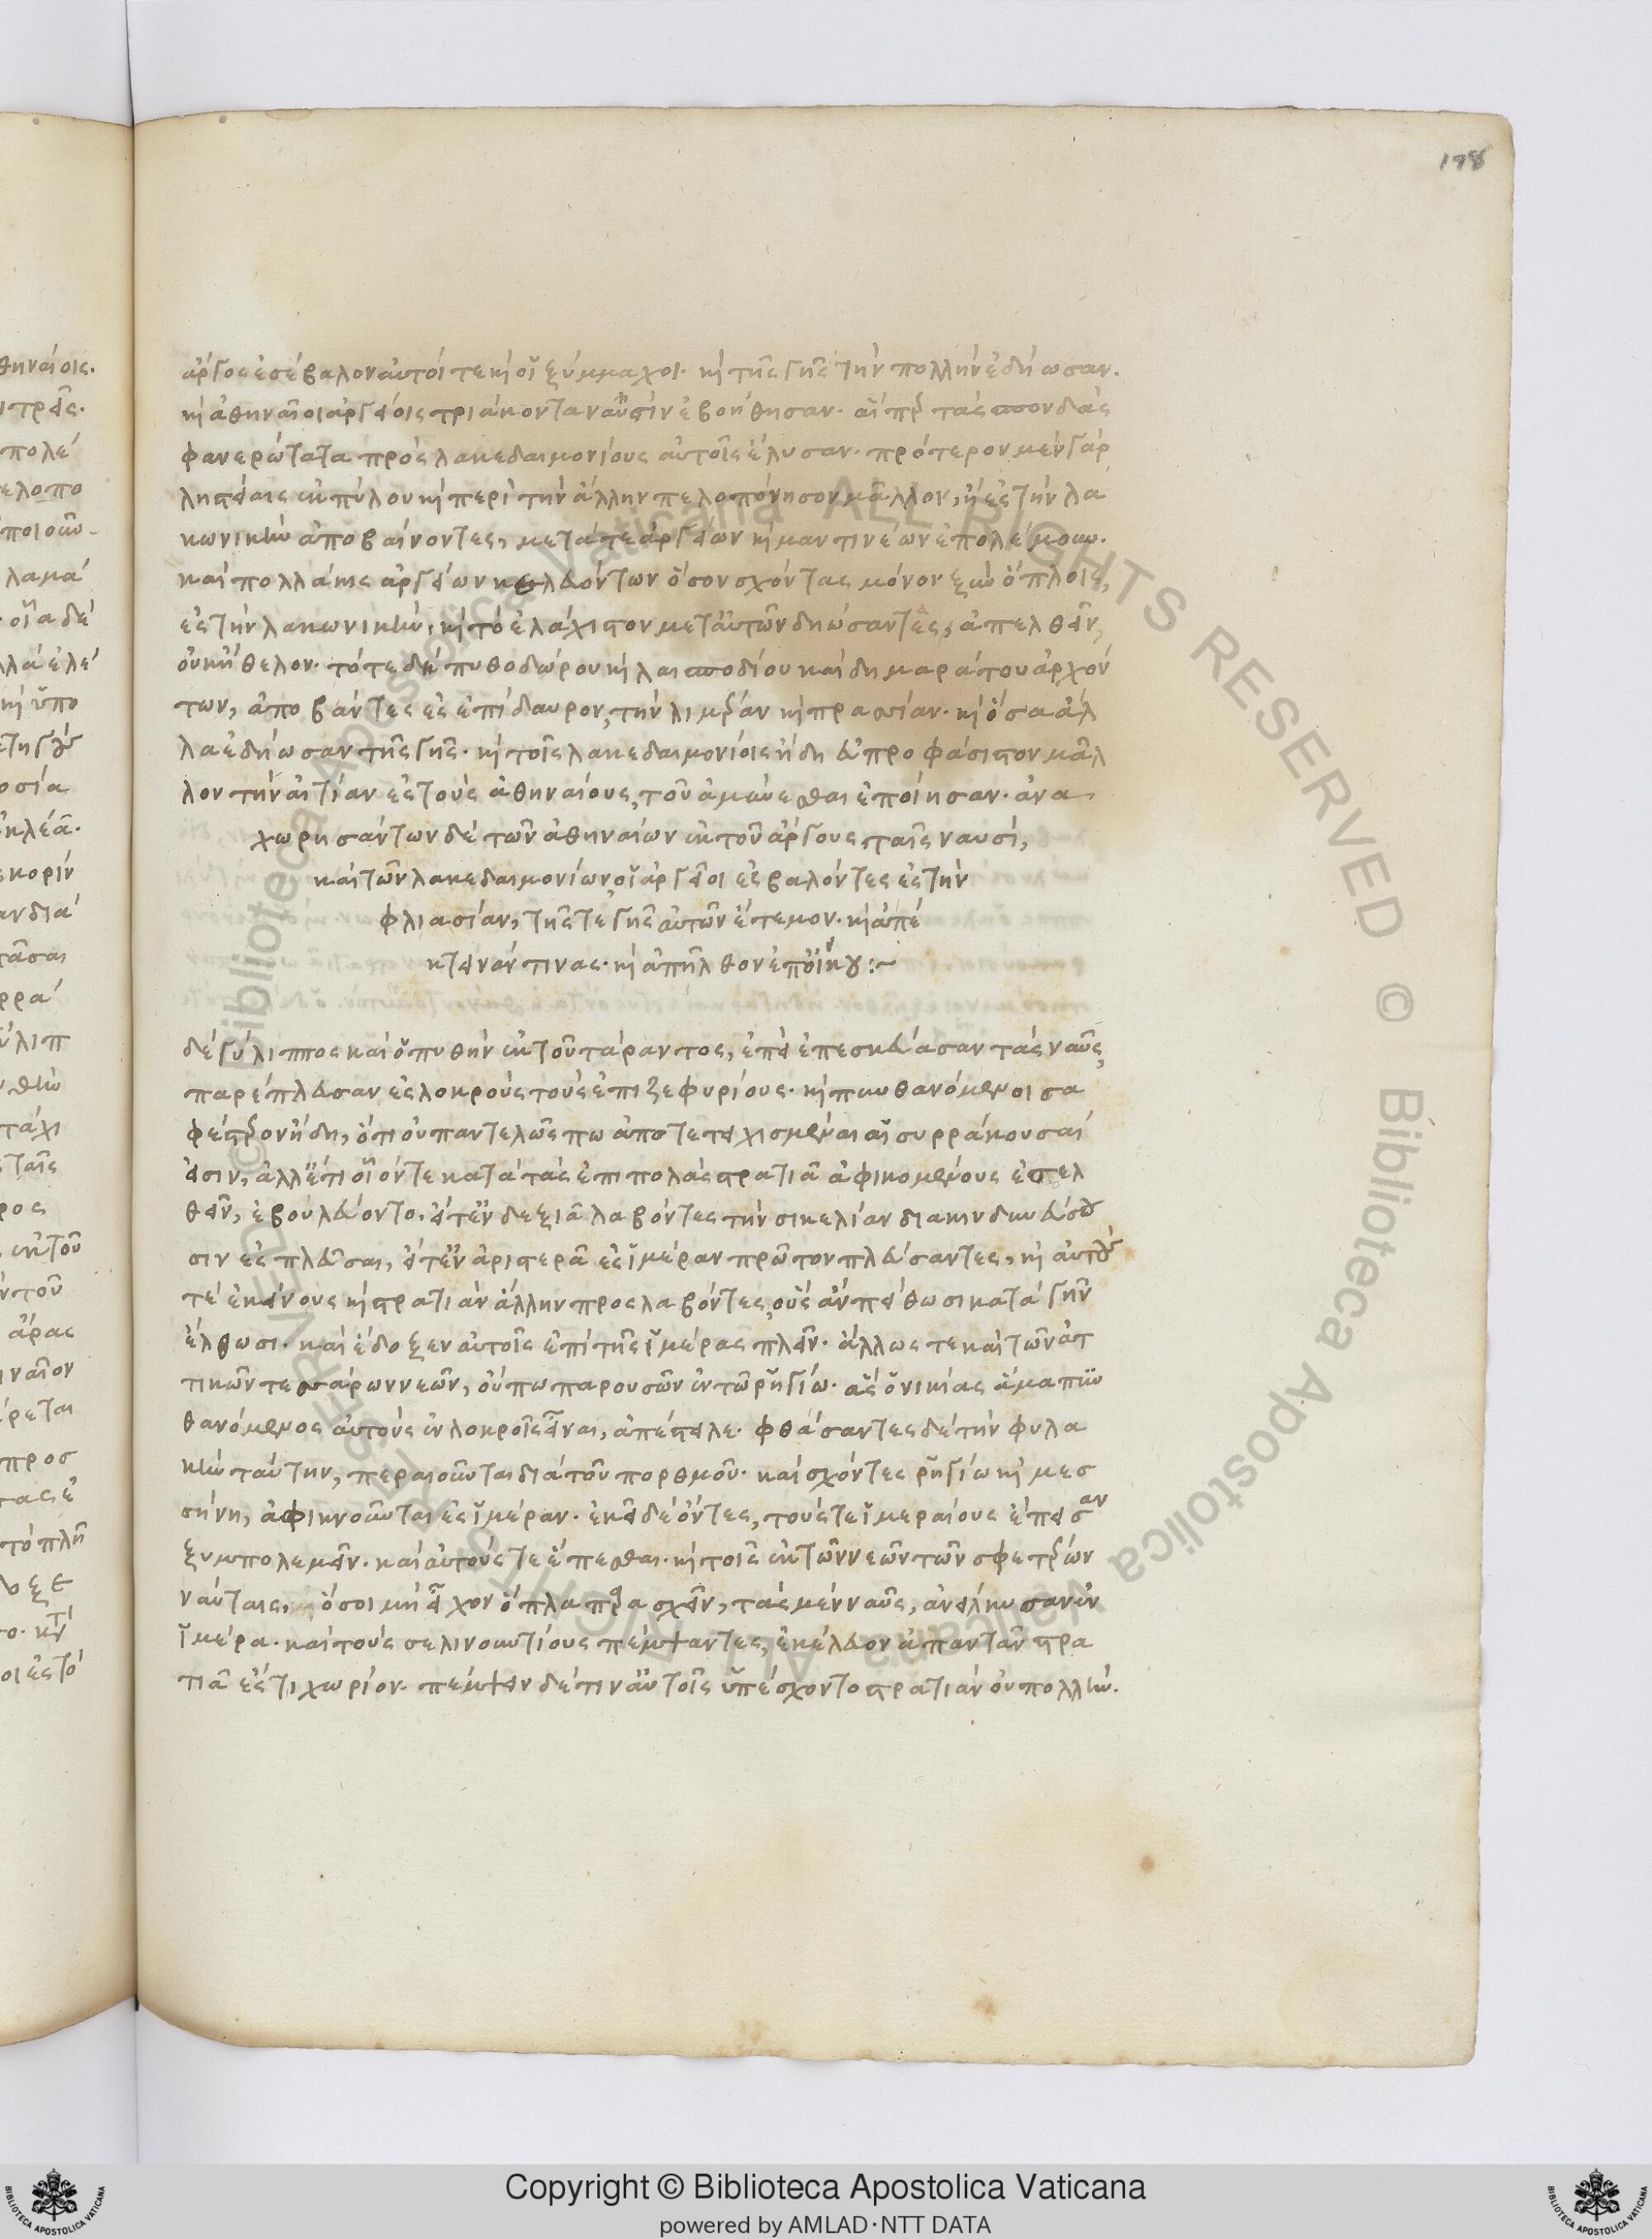 178
ἄργος ἐσέβαλον αὐτοί τε καὶ οἱ ξύμμαχοι· καὶ τῆς γῆς τὴν πολλὴν ἐδήωσαν.
καὶ ἀθηναῖοι ἀργείοις τριάκοντα ναυσὶν ἐβοήθησαν· αἵπερ τὰς σπονδὰς
φανερώτατα πρὸς λακεδαιμονίους αὐτοῖς ἔλυσαν· πρότερον μὲν γὰρ
ληστείαις ἐκ πύλου καὶ περὶ τὴν ἄλλην πελοπόνησον μᾶλλον, ἢ ἐς τὴν λα
κωνικὴν ἀποβαίνοντες, μετά τε ἀργείων καὶ μαντινέων ἐπολέμουν.
καὶ πολλάκις ἀργείων κελευόντων ὅσον σχόντας μόνον ξὺν ὅπλοις,
ἐς τὴν λακωνικὴν· καὶ τὸ ἐλάχιστον μετ αὐτῶν δηώσαντες, ἀπελθεῖν,
οὐκ ἤθελον· τότε δὴ πυθοδώρου καὶ λαισποδίου καὶ δημαράτου ἀρχόν
των, ἀποβάντες ἐς ἐπίδαυρον, τὴν λιμηρὰν καὶ πρασίαν· καὶ ὅσα ἄλ
λα ἐδήωσαν τῆς γῆς· καὶ τοῖς λακεδαιμονίοις ἤδη εὐπροφάσιστον μᾶλ
λον τὴν αἰτίαν ἐς τοὺς ἀθηναίους, τοῦ ἀμύνεσθαι ἐποίησαν· ἀνα
χωρησάντων δὲ τῶν ἀθηναίων ἐκ τοῦ ἄργους ταῖς ναυσὶ,
καὶ τῶν λακεδαιμονίων, οἱ ἀργεῖοι ἐσβαλόντες ἐς τὴν
φλιασίαν, τῆς τε γῆς αὐτῶν ἔτεμον· καὶ ἀπέ
κτειναν τινας· καὶ ἀπῆλθον ἐπ οἴκου:~
δὲ γύλιππος καὶ ὁ πυθὴν ἐκ τοῦ τάραντος, ἐπεὶ ἐπεσκεύασαν τὰς ναῦς,
παρέπλευσαν ἐς λοκροὺς τοὺς ἐπιζεφυρίους· καὶ πυνθανόμενοι σα
φέστερον ἤδη, ὅτι οὐ παντελῶς πω ἀποτετειχισμέναι αἱ συρράκουσαί
εἰσιν, ἀλλ ἔτι οἷόν τε κατὰ τὰς ἐπιπολὰς στρατιᾶ ἀφικομένους ἐσελ
θεῖν, ἐβουλεύοντο, εἴτ ἐν δεξιᾶ λαβόντες τὴν σικελίαν διακινδυνεύσω
σιν ἐσπλεῦσαι, εἴτ ἐν ἀριστερᾶ ἐς ἱμέραν πρῶτον πλεύσαντες, καὶ αὐτούς
τε ἐκείνους καὶ στρατιὰν ἄλλην προσλαβόντες, οὓς ἂν πείθωσι κατὰ γῆν
ἔλθωσι· καὶ ἔδοξεν αὐτοῖς ἐπὶ τῆς ἱμέρας πλεῖν· ἄλλως τε καὶ τῶν ἀτ
τικῶν τεσσάρων νεῶν, οὔπω παρουσῶν ἐν τῶ ῥηγίω· ἃς ὁ νικίας ἅμα πυν
θανόμενος αὐτοὺς ἐν λοκροῖς εἶναι, ἀπέστειλε· φθάσαντες δὲ τὴν φυλα
κὴν ταύτην, περαιοῦνται διὰ τοῦ πορθμοῦ· καὶ σχόντες ῥηγίω καὶ μεσ
σήνη, ἀφικνοῦνται ἐς ἱμέραν· ἐκεῖ δὲ ὄντες, τούς τε ἱμεραίους ἔπεισαν
ξυμπολεμεῖν· καὶ αὐτούς τε ἕπεσθαι· καὶ τοῖς ἐκ τῶν νεῶν τῶν σφετέρων
ναύταις, ὅσοι μὴ εἶχον ὅπλα παρασχεῖν, τὰς μὲν ναῦς, ἀνείλκυσαν ἐν
ἱμέρα· καὶ τοὺς σελινουντίους πέμψαντες, ἐκέλευον ἀπαντᾶν στρα
τιᾶ ἔς τι χωρίον· πέμψειν δέ τιν αὐτοῖς ὑπέσχοντο στρατιὰν οὐ πολλὴν.
Copyright © Biblioteca Apostolica Vaticana
powered by AMLAD·NTT DATA